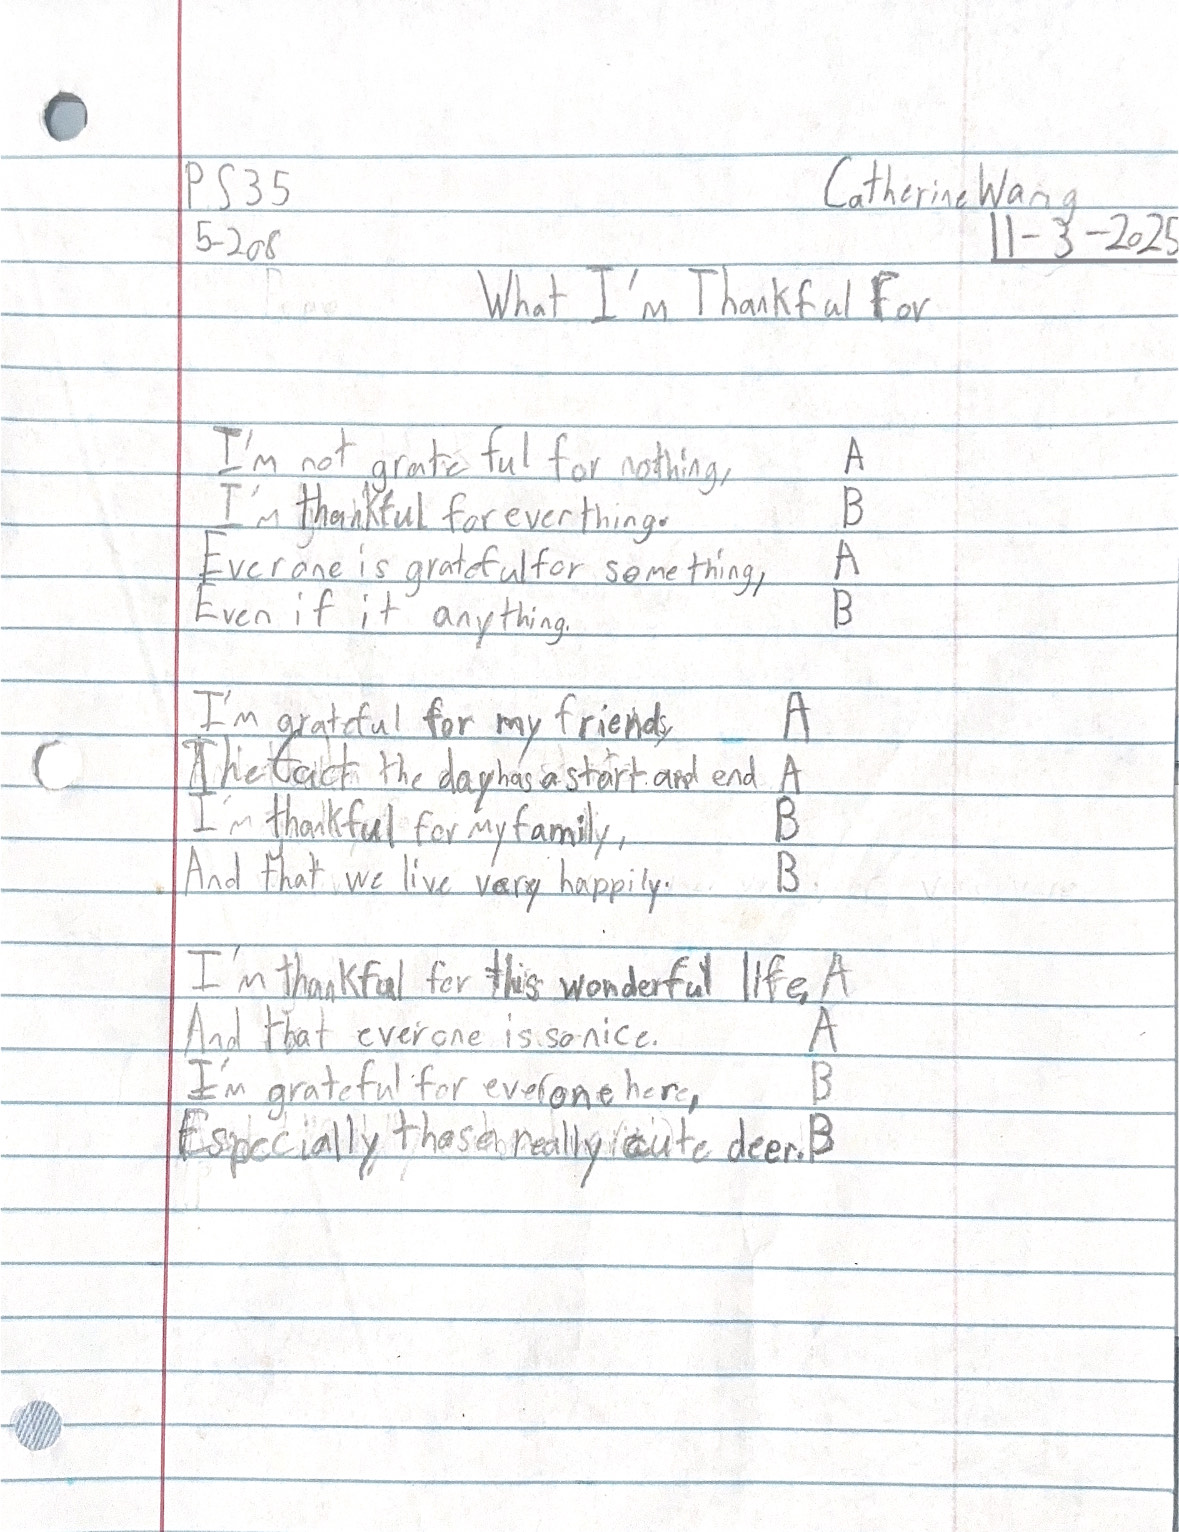 PS35 Catherine Wang
5-208 11-3-2025
What I'm Thankful For
I'm not grateful for nothing, A
I'm thankful for everthing. B
Everone is grateful for something, A
Even if it anything. B
I'm grateful for my friends, A
The fact the day has a start and end A
I'm thankful for my family, B
And that we live very happily. B
I'm thankful for this wonderful life, A
And that everone is so nice. A
I'm grateful for everone here, B
Especially those really cute deer. B